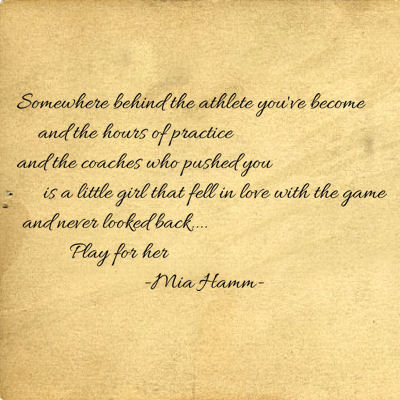 Somewhere behind the athlete you've become
and the hours of practice
and the coaches who pushed you
is a little girl that fell in love with the game
and never looked back....
Play for her
-Mia Hamm-